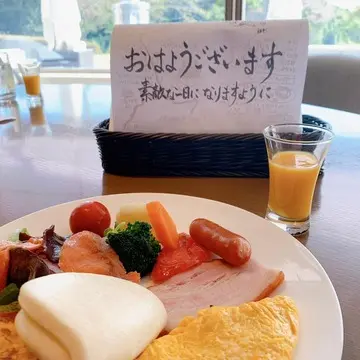 おはようございます
素敵な一日になりますように